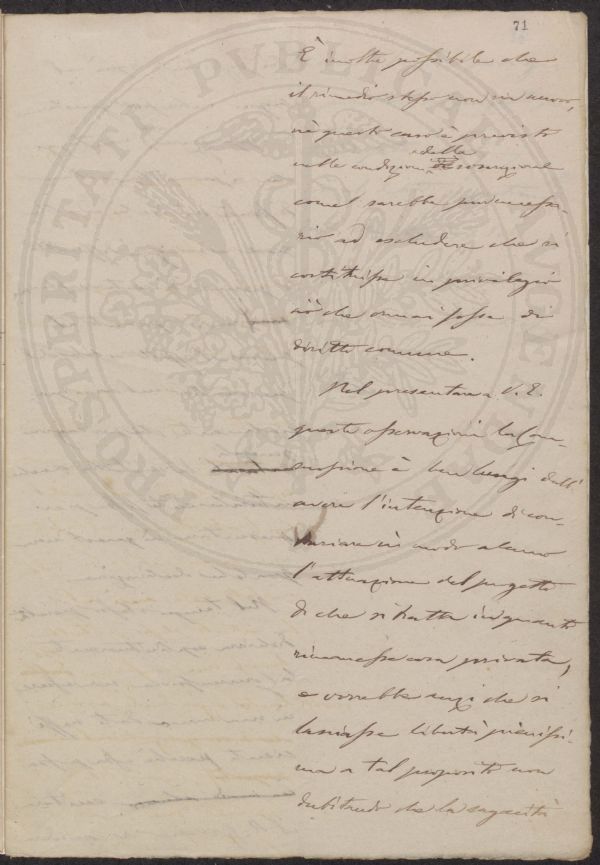 71
È inoltre possibile che
il rimedio stesso non sia nuovo,
nè questo caso è previsto
nelle condizioni della concezione
come sarebbe pur necessa-
rio ad escludere che si
costituisse in privilegio
ciò che omai fosse di
diritto comune.
Nel presentare a V. E.
queste osservazioni la Com-
missione è ben lungi dall'
avere l'intenzione di con-
trariare in modo alcuno
l'attuazione del progetto
di che si tratta in quanto
rimanesse cosa privata,
e vorrebbe anzi che si
lasciasse libertà pienissi-
ma a tal proposito non
dubitando che la sagacità
PROSPERITATI PVBLICAE AVGE